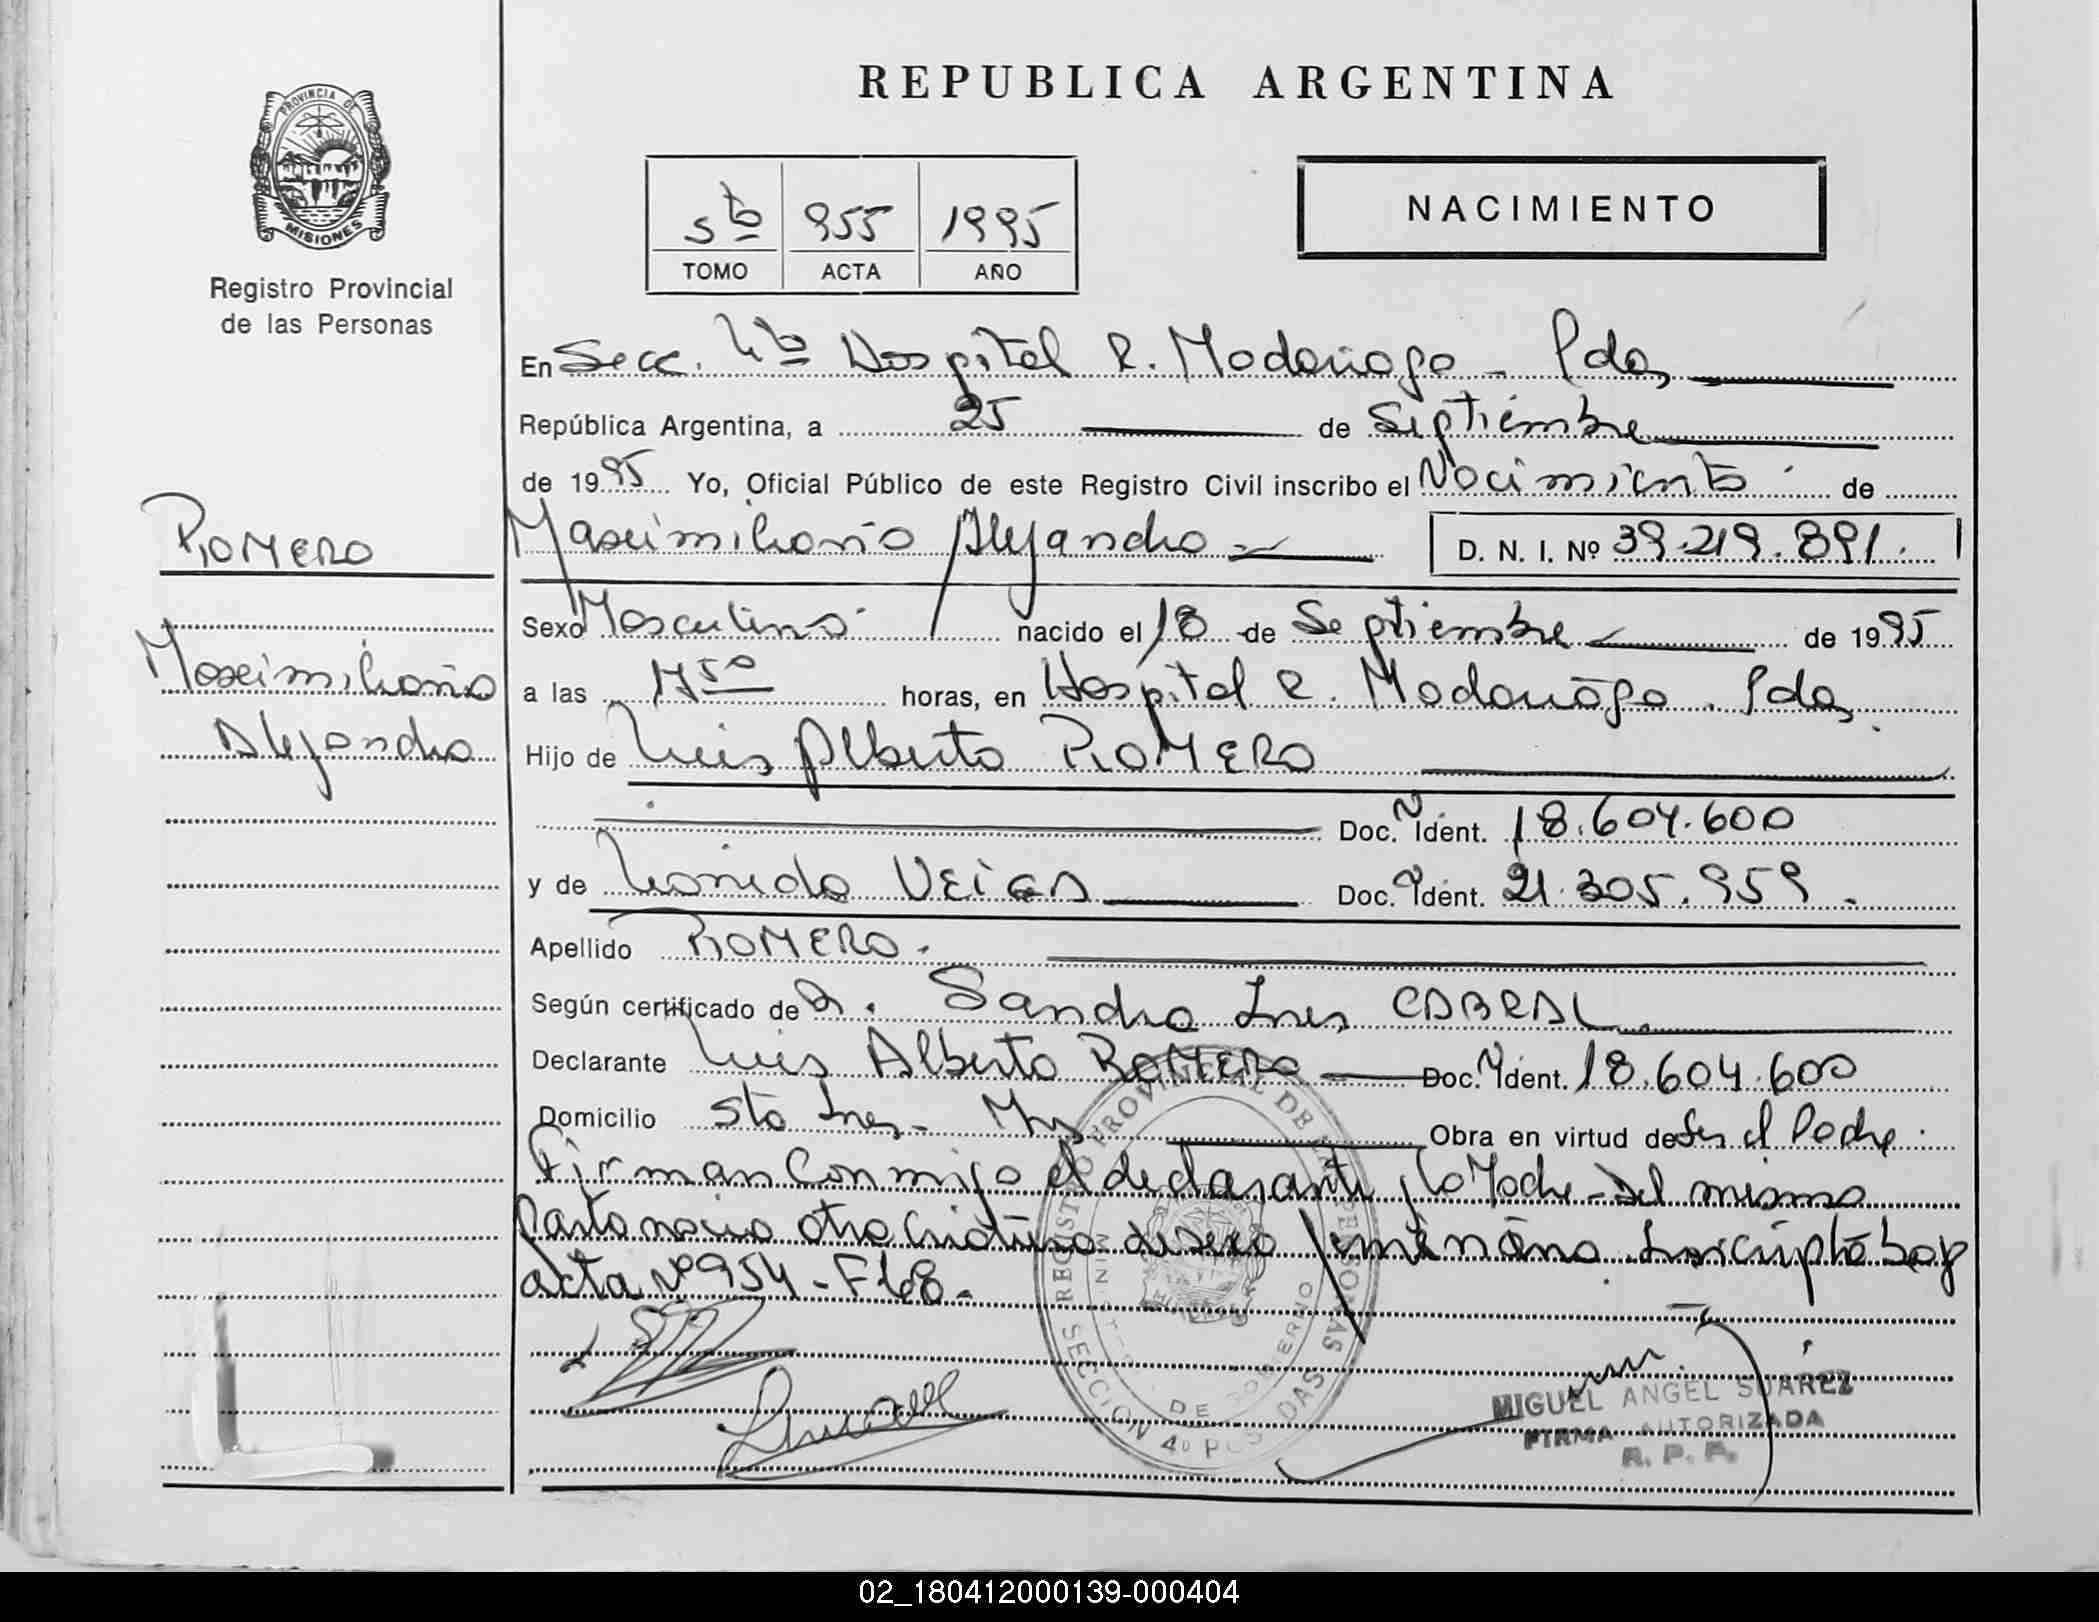 PROVINCIA DE
MISIONES
Registro Provincial
de las Personas
REPUBLICA ARGENTINA
5to 955 1995
TOMO ACTA AÑO
NACIMIENTO
En Secc. 4ta Hospital R. Madariaga - Pdas
República Argentina, a 25 de Septiembre
de 1995 Yo, Oficial Público de este Registro Civil inscribo el Nacimiento de
ROMERO
Maximiliano Alejandro D. N. I. Nº 39.219.891.
Sexo Masculino nacido el 18 de Septiembre de 1995
Maximiliano
a las horas, en Hospital R. Madariaga. Pdas
Alejandro
Hijo de Luis Alberto ROMERO
Doc. Ident. 18.604.600
y de VEIGA Doc. Ident. 21.305.959.
Apellido ROMERO.
Según certificado de Sandra Ines CABRAL
Declarante Luis Alberto ROMERO Doc. Ident. 18.604.600
Domicilio Sta Ines - Mnes Obra en virtud de Ser el Padre.
Firman Conmigo el declarante y la Madre - Del mismo
Parto nacio otra Criatura de sexo femenino Inscripta bajo
acta Nº 954 - F 68.
REGISTRO PROVINCIAL DE LAS PERSONAS
SECCION 4º POSADAS
DE GOBIERNO
MIGUEL ANGEL SUAREZ
FIRMA AUTORIZADA
R. P. P.
02_180412000139-000404